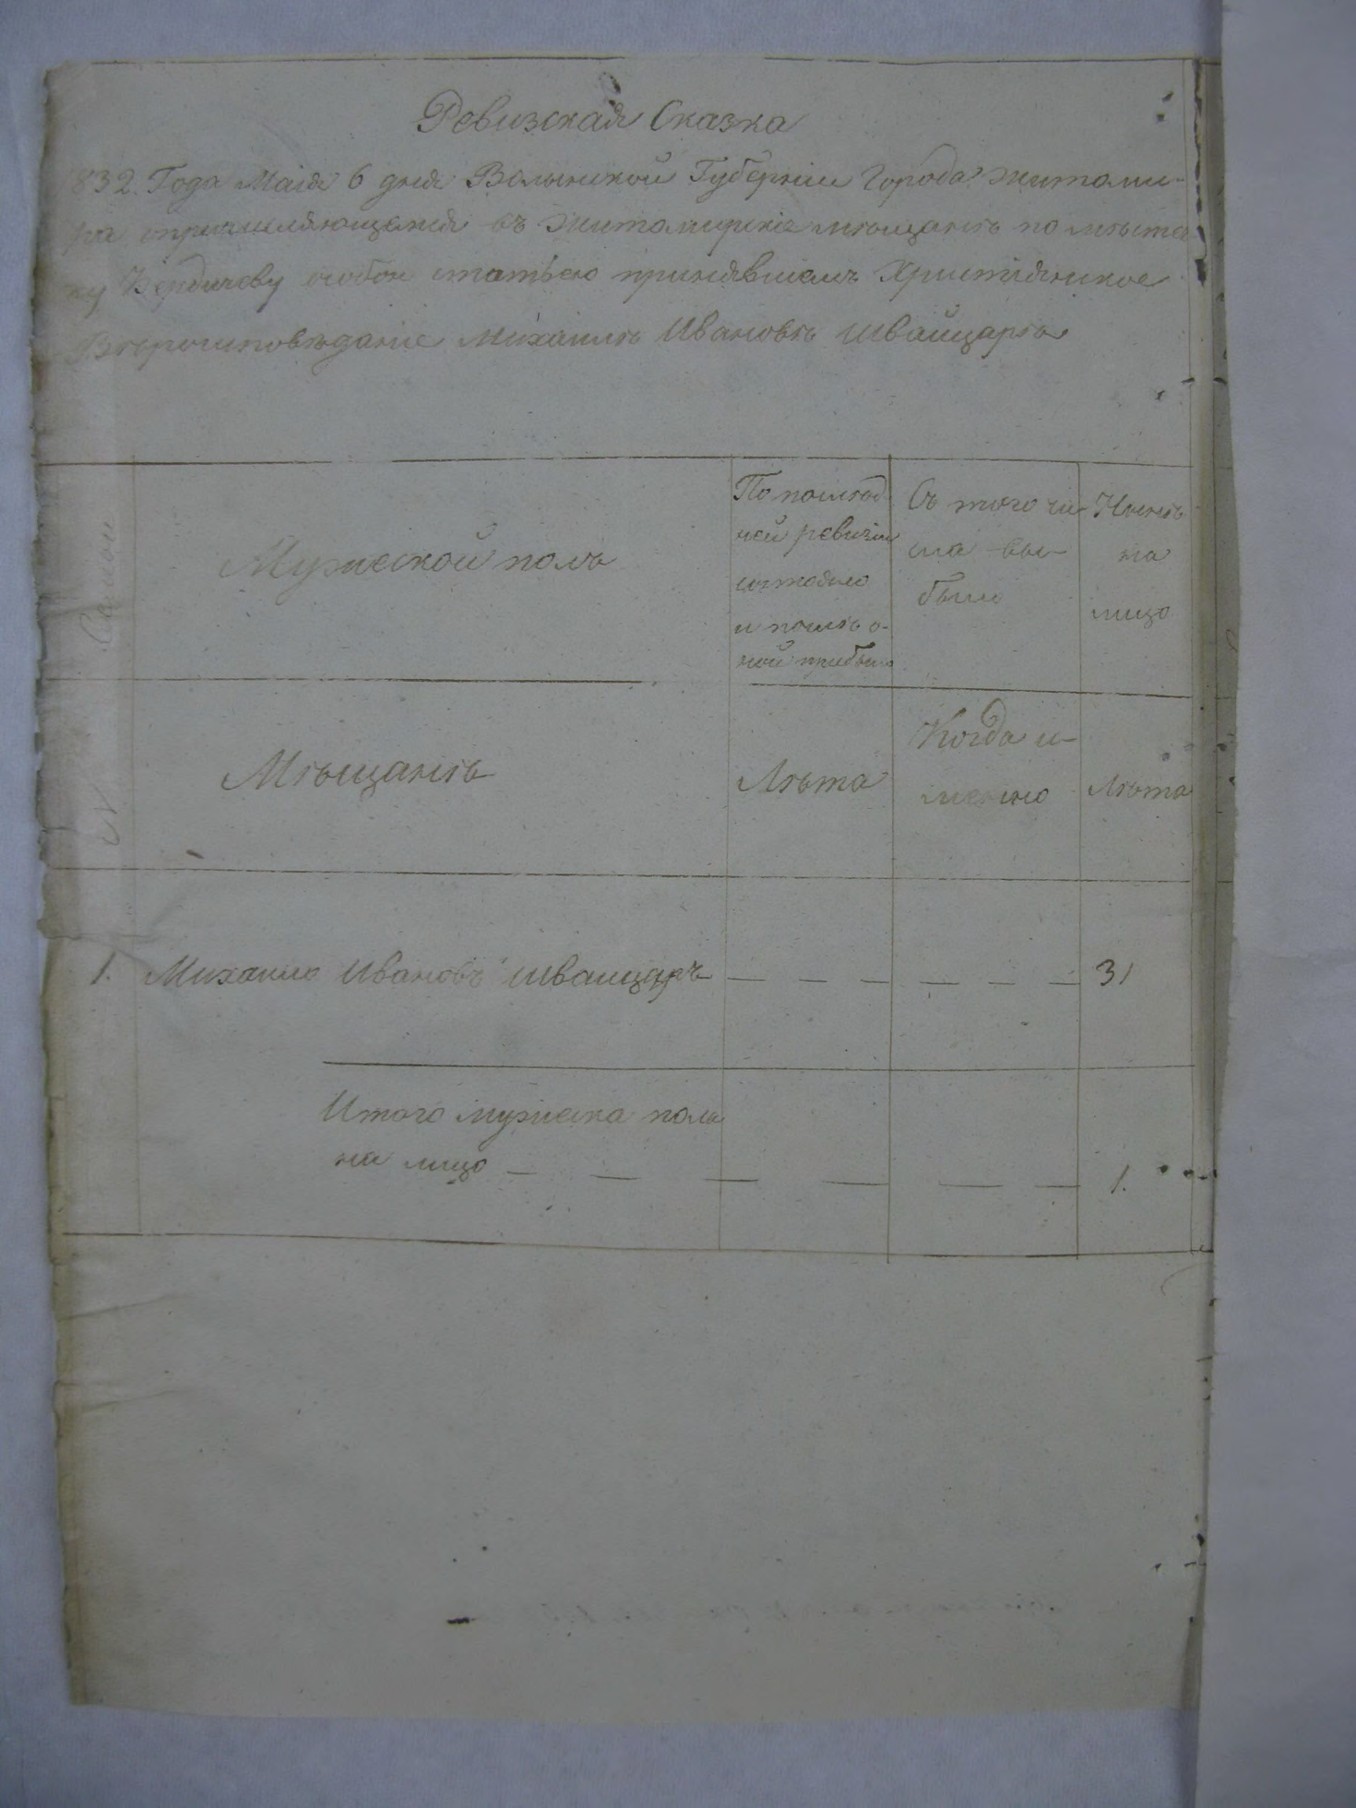 Ревизская Сказка
832. Года Маія 6 дня Волынской Губерніи Города Житоми-
ра о причисляющемся въ Житомирскіе мѣщанѣ по мѣстеч
ку Бердичеву особою статьею принявшемъ Христіянское
Вѣроисповѣданіе Михаилѣ Ивановѣ Швайцарѣ
№ Семьи
Мужеской полъ
По послѣд
ней ревизіи
состояло
и послѣ о-
ной прибыло
Съ того чи
сла вы-
было
Нынѣ
на
лицо
Мѣщанѣ
Лѣта
Когда и-
менно
Лѣта
1. Михаило Ивановъ Швайцаръ — — — — — — 31
Итого мужеска пола
на лицо — — — — — — 1.